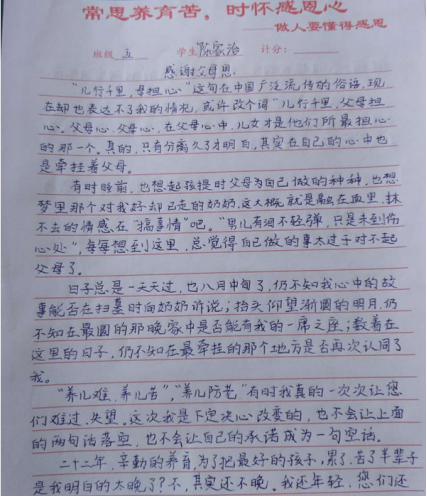 常思养育苦，时怀感恩心
——做人要懂得感恩
班级 五 学生 陈家治 计分：
感谢父母恩
"儿行千里，母担心"这句在中国广泛流传的俗语，现
在却也表达不了我的情况，或许改个词"儿行千里，父母担
心。父母心，父母心，在父母心中，儿女才是他们所最担心
的那一个。真的，只有分离久了才明白，其实在自己的心中也
是牵挂着父母。
有时睡前，也想起孩提时父母为自己做的种种，也想
梦里那个对我好却已走的奶奶，这大概就是融在血里，抹
不去的情感在"搞事情"吧。"男儿有泪不轻弹，只是未到伤
心处"，每每想到这里，总觉得自己做的事太过于对不起
父母了。
日子总是一天天过，也八月中旬了，仍不知我心中的故
事能否在扫墓时向奶奶诉说；抬头仰望渐圆的明月，仍
不知在最圆的那晚，家中是否能有我的一席之座；数着在
这里的日子，仍不知在最牵挂的那个地方是否再次认同了
我。
"养儿难，养儿苦"，"养儿防老"有时我真的一次次让您
们难过，失望。这次我是下定决心改变的，也不会让上面
的两句话落空，也不会让自己的承诺成为一句空话。
二十二年，辛勤的养育，为了把最好的孩子，累了，苦了半辈子
是我明白的太晚了？不，其实还不晚。我还年轻，您们还